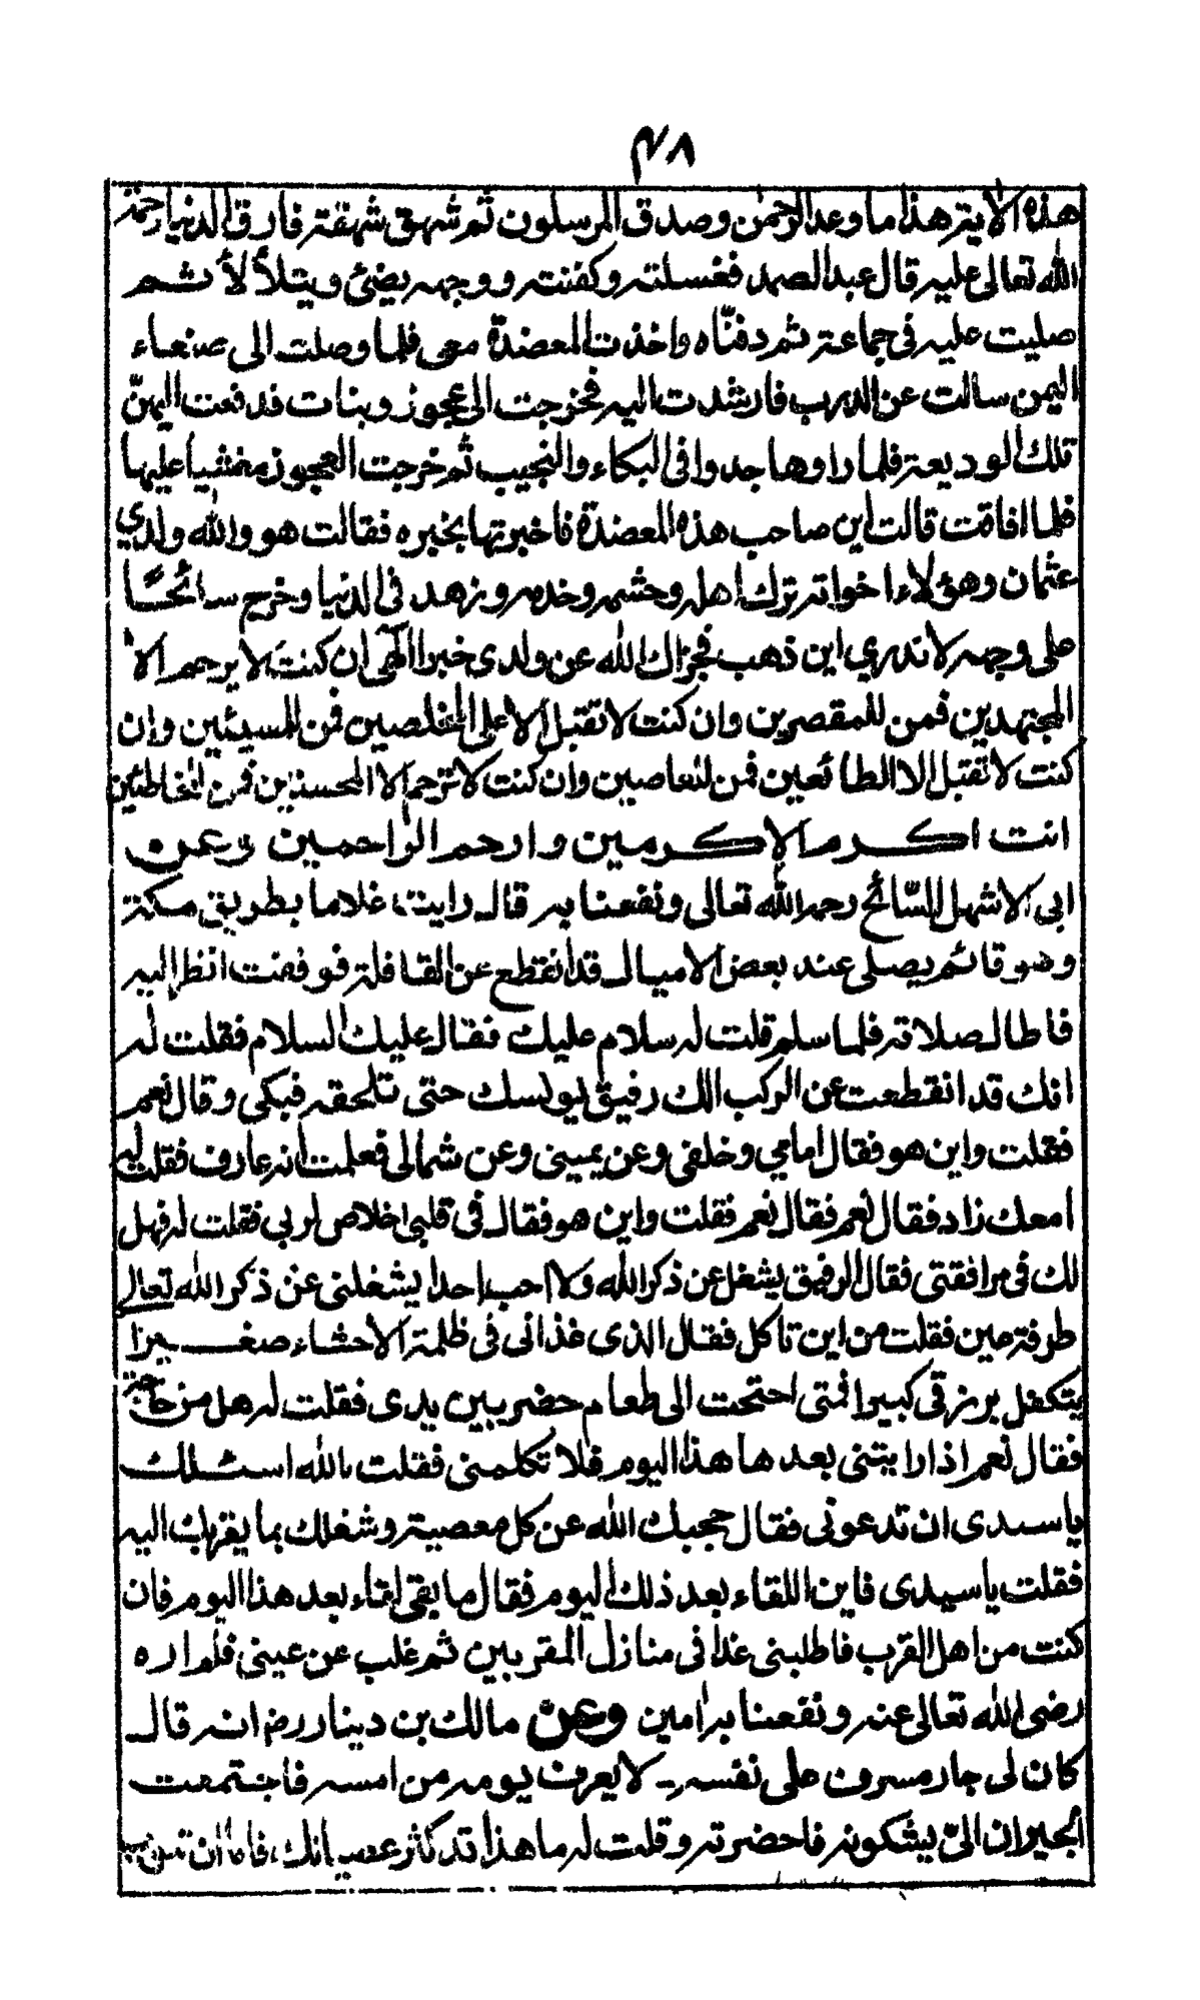 ٤٨
هذه الاية هذا ما وعد الرحمن وصدق المرسلون ثم شهق شهقة فارق الدنيا رحمة
الله تعالى عليه قال عبد الصمد فغسلته وكفنته ووجهه يضئ ويتلألأ ثم
صليت عليه فى جماعة ثم دفنّاه واخذت المعضدة معى فلما وصلت الى صنعاء
اليمن سالت عن الدرب فارشدت اليه فخرجت الى عجوز وبنات فدفعت اليهنّ
تلك الوديعة فلما راوها جدوا فى البكاء والنحيب ثم خرجت العجوز مغشيا عليها
فلما افاقت قالت اين صاحب هذه المعضدة فاخبرتها بخبره فقالت هو والله ولدي
عثمان وهؤلاء اخواته ترك اهله وحشمه وخدمه وزهد فى الدنيا وخرج سائحًا
على وجهه لا ندري اين ذهب فجزاك الله عن ولدى خيرا الهى ان كنت لا يرحم الا
المجتهدين فمن للمقصرين وان كنت لا تقبل الا على المخلصين فمن للمسيئين وان
كنت لا تقبل الا الطائعين فمن للعاصين وان كنت لا ترحم الا المحسنين فمن للخاطئين
انت اكرم الاكرمين وارحم الراحمين وعن
ابى الاشهل السّائح رحمه الله تعالى ونفعنا به قال رايت غلاما بطريق مكة
وهو قائم يصلى عند بعض الاميال قد انقطع عن القافلة فوقفت انظر اليه
فاطال صلاته فلما سلم قلت له سلام عليك فقال عليك السلام فقلت له
انك قد انقطعت عن الركب الك رفيق يونسك حتى تلحقه فبكى وقال نعم
فقلت واين هو فقال امامي وخلفى وعن يمينى وعن شمالى فعلمت انه عارف فقلت له
امعك زاد فقال نعم فقال نعم فقلت واين هو فقال فى قلبى اخلاص لربى فقلت له فهل
لك فى مرافقتى فقال الرفيق يشغل عن ذكر الله ولا احب احدا يشغلنى عن ذكر الله تعالى
طرفة عين فقلت من اين تاكل فقال الذى غذانى فى ظلمة الاحشاء صغيرا
يتكفل برزقى كبيرا فمتى احتجت الى طعام حضر بين يدى فقلت له هل من حاجة
فقال نعم اذا رايتنى بعد ها هذا اليوم فلا تكلمنى فقلت بالله اسئلك
ياسيدى ان تدعونى فقال حجبك الله عن كل معصية وشغلك بما يقربك اليه
فقلت ياسيدى فاين اللقاء بعد ذلك اليوم فقال ما بقى لقاء بعد هذا اليوم فان
كنت من اهل القرب فاطلبنى غدا فى منازل المقربين ثم غلب عن عينى فلم اره
رضى الله تعالى عنه ونفعنا به امين وعن مالك بن دينار رضه انه قال
كان لى جار مسرف على نفسه لا يعرف يومه من امسه فاجتمعت
الجيران الىّ يشكونه فاحضرته وقلت له ما هذا قد كثر عصيانك فاما ان